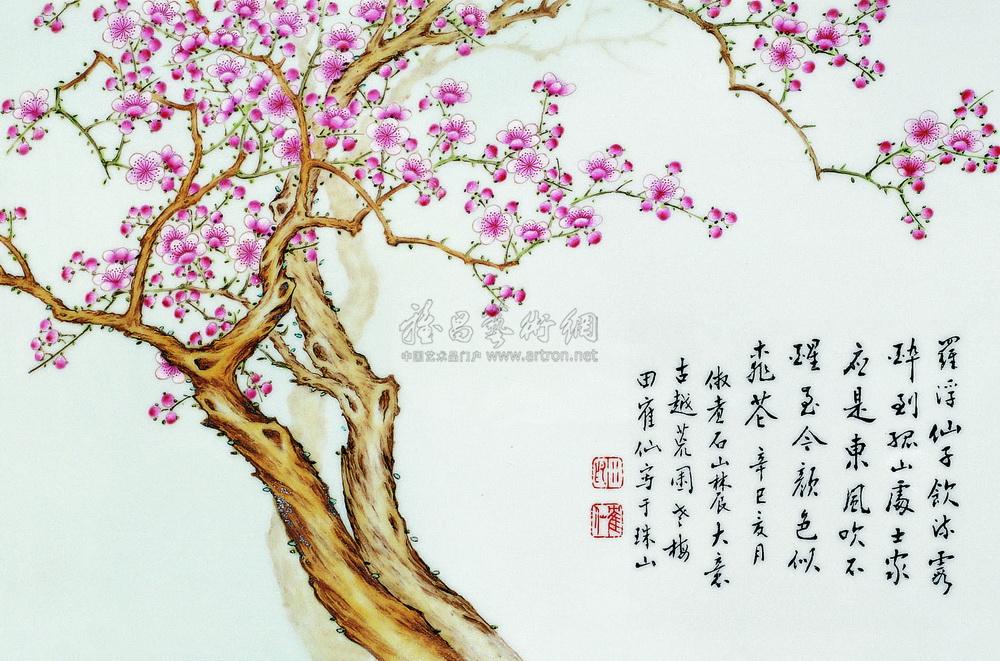 羅浮仙子飲流霞
醉到孤山處士家
應是東風吹不
醒至今顏色似
桃花 辛巳亥月
倣煮石山林居大意
古越荒園老梅
田寉仙寫于珠山
雅昌藝術網
中国艺术品门户 www.artron.net